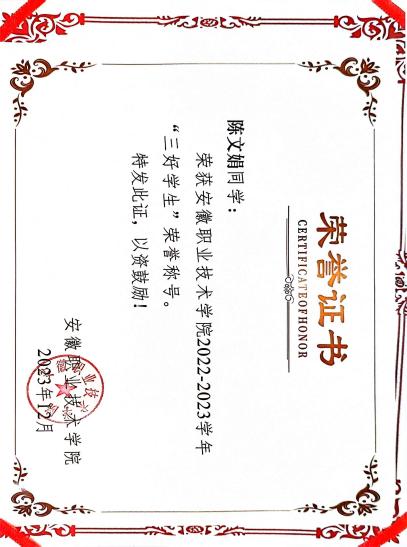 荣誉证书
CERTIFICATEOFHONOR
陈文娟同学：
荣获安徽职业技术学院2022-2023学年
“三好学生”荣誉称号。
特发此证，以资鼓励！
安徽职业技术学院
2023年12月